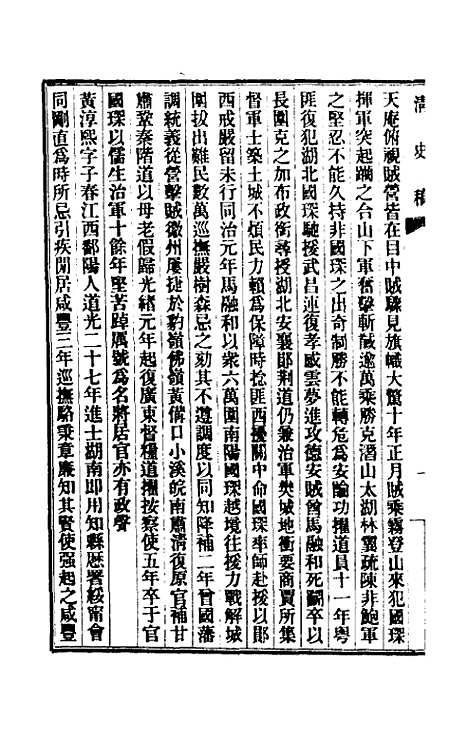 清史稿
天庵俯視賊營皆在目中賊驟見旗幟大驚十年正月賊乘霧登山來犯國琛
揮軍突起蹴之台山下軍奮擊斬馘逾萬乘勝克潛山太湖林翼疏陳非鮑軍
之堅忍不能久持非國琛之出奇制勝不能轉危為安論功擢道員十一年粵
匪復犯湖北國琛馳援武昌連復孝感雲夢進攻德安賊酋馬融和死鬬卒以
長圍克之加布政銜尋授湖北安襄鄖荆道仍兼治軍樊城地衝要商賈所集
督軍士築土城不煩民力賴為保障時捻匪西擾關中命國琛率師赴援以鄖
西戒嚴留未行同治元年馬融和以衆六萬圍南陽國琛越境往援力戰解城
圍拔出難民數萬巡撫嚴樹森忌之劾其不遵調度以同知降補二年曾國藩
調統義從營擊賊徽州屢捷於豹嶺佛嶺黃備口小溪皖南肅清復原官補甘
肅鞏秦階道以母老假歸光緒元年起復廣東督糧道擢按察使五年卒于官
國琛以儒生治軍十餘年堅苦踔厲號為名將居官亦有政聲
黃淳熙字子春江西鄱陽人道光二十七年進士湖南即用知縣歷署綏甯會
同剛直為時所忌引疾閒居咸豐三年巡撫駱秉章廉知其賢使强起之咸豐